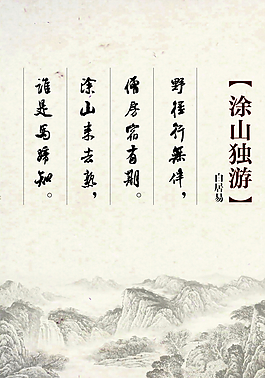 【涂山独游】
白居易
野径行無伴，
僧房宿有期。
涂山来去熟，
誰是马蹄知。